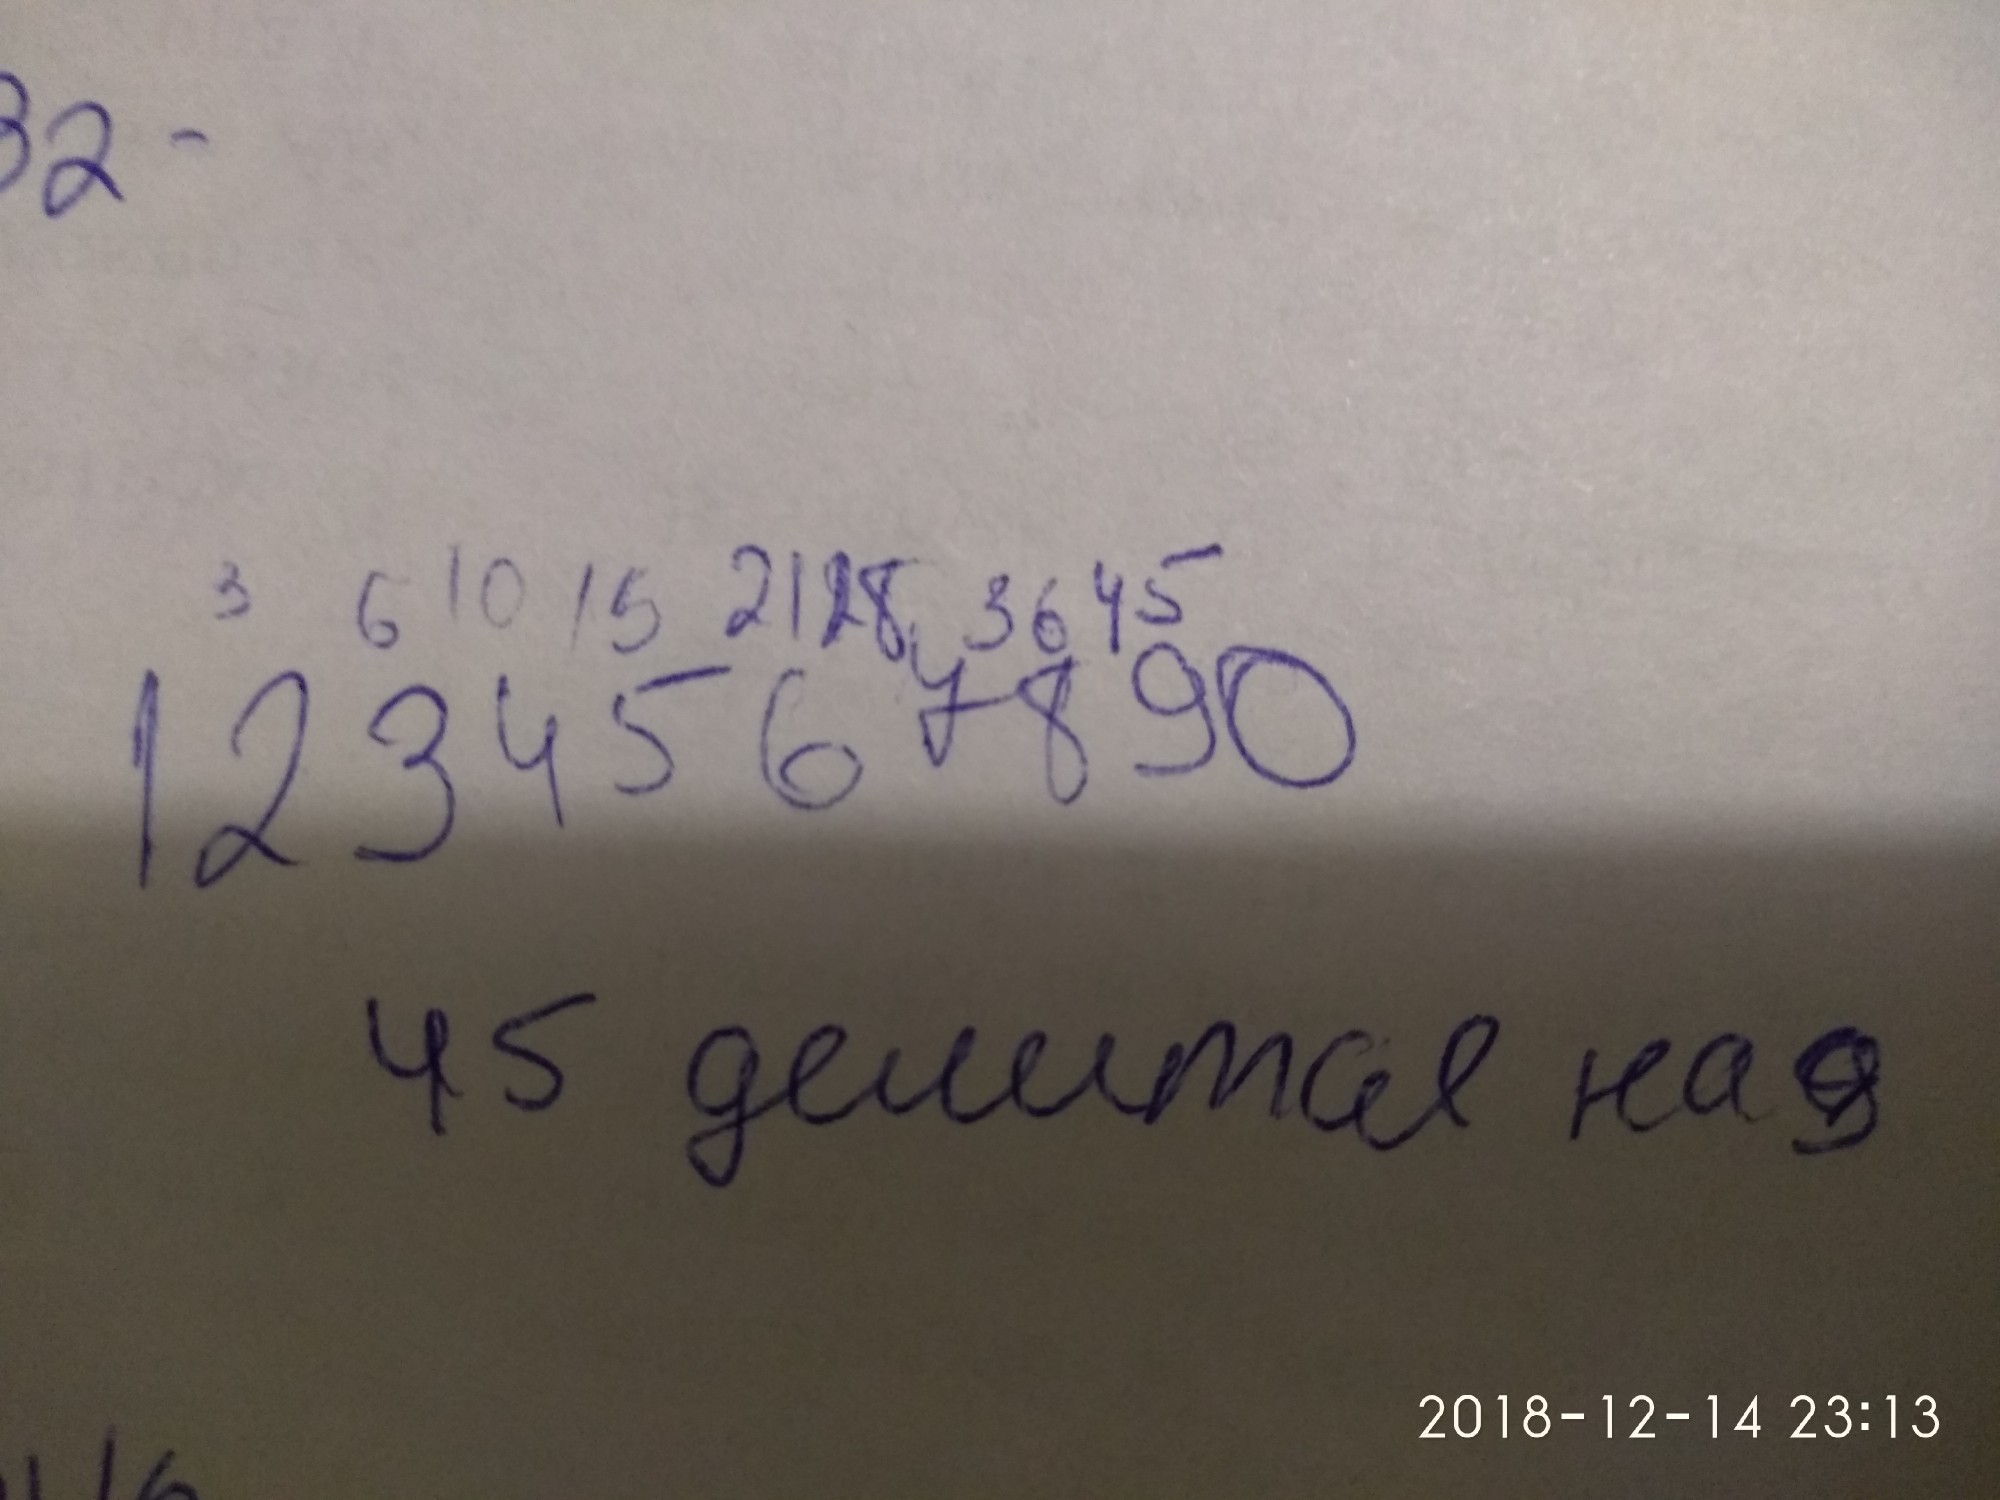 32 -
3 6 10 15 21 28 36 45
1 2 3 4 5 6 7 8 9 0
45 делится на 9
2018-12-14 23:13